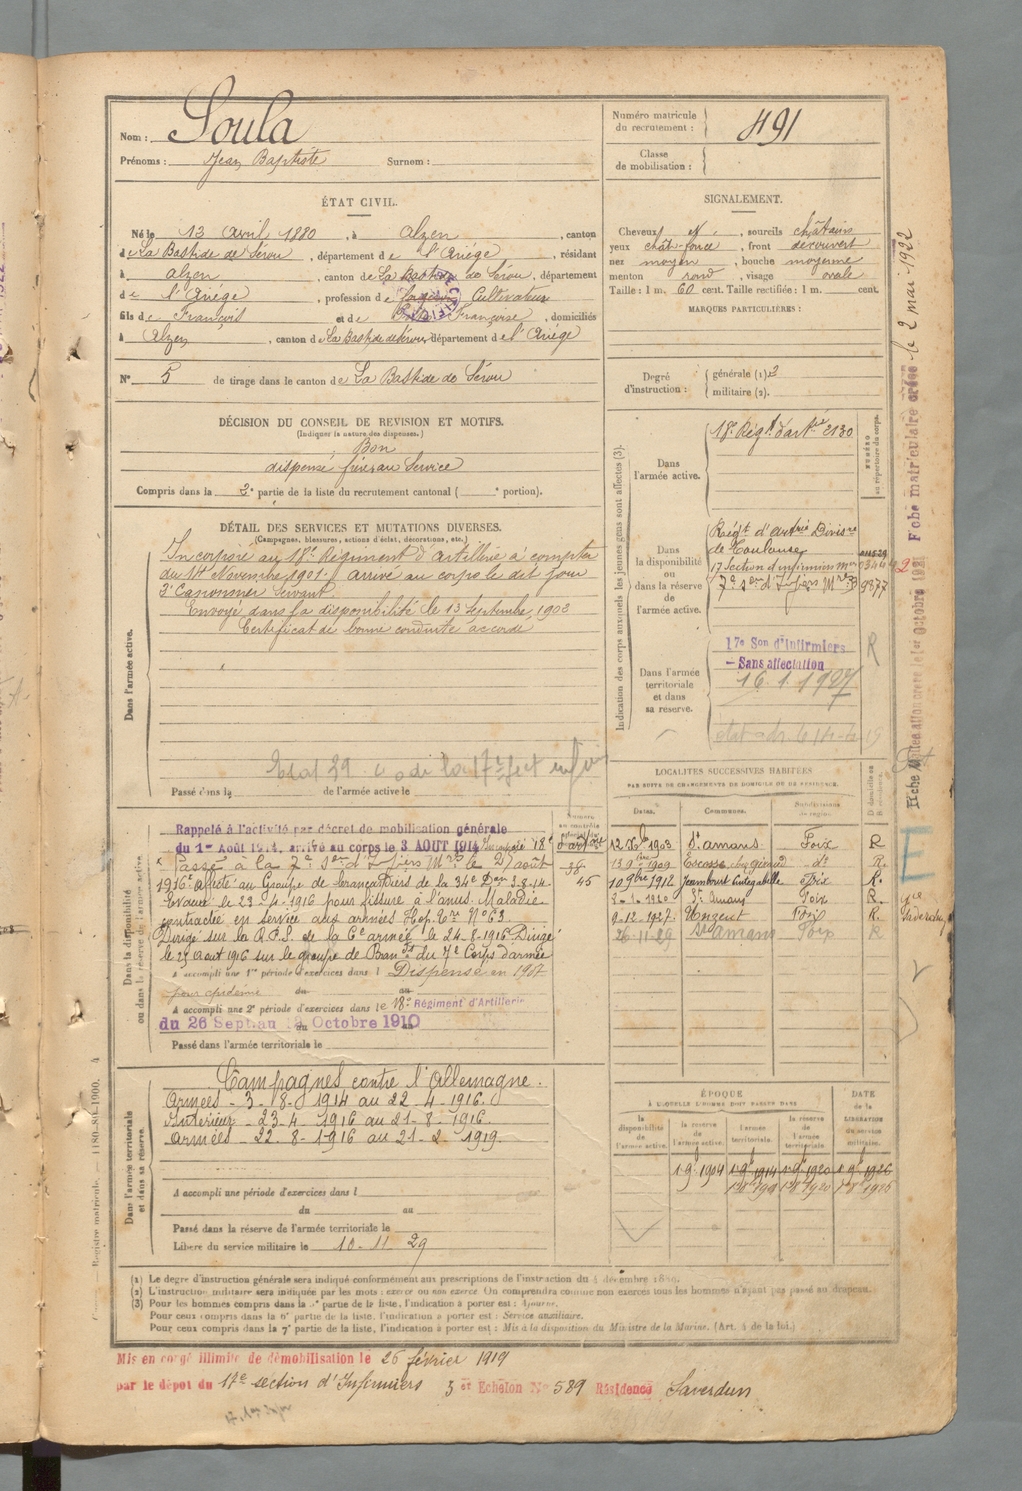 Nom : Soula
Prénoms : Jean Baptiste Surnom :
Numéro matricule du recrutement : 491
Classe de mobilisation :
ÉTAT CIVIL.
Né le 13 avril 1880, à Alzen, canton
de La Bastide de Sérou, département de l'Ariége, résidant
à Alzen, canton de La Bastide de Sérou, département
de l'Ariége, profession de Cultivateur
fils de François et de Françoise, domiciliés
à Alzen, canton de La Bastide de Sérou département de l'Ariége
N° 5 de tirage dans le canton de La Bastide de Sérou
SIGNALEMENT.
Cheveux et, sourcils châtains
yeux, front découvert
nez moyen, bouche moyenne
menton rond, visage ovale
Taille : 1 m. 60 cent. Taille rectifiée : 1 m. cent.
MARQUES PARTICULIÈRES :
Degré d'instruction : générale (1). 2
militaire (2).
DÉCISION DU CONSEIL DE REVISION ET MOTIFS.
(Indiquer la nature des dispenses.)
Bon
dispensé frère au Service
Compris dans la 2e partie de la liste du recrutement cantonal ( e portion).
DÉTAIL DES SERVICES ET MUTATIONS DIVERSES.
(Campagnes, blessures, actions d'éclat, décorations, etc.)
Dans l'armée active.
Incorporé au 18e Régiment d'Artillerie à compter
du 14 Novembre 1901. arrivé au corps le dit jour
2e Canonnier Servant
Envoyé dans la disponibilité le 13 Septembre 1902
Certificat de bonne conduite accordé
Passé dans la de l'armée active le
Indication des corps auxquels les jeunes gens sont affectés (3).
NUMÉRO au répertoire du corps.
Dans l'armée active.
18e Régt d'artie 2130
Dans la disponibilité ou dans la réserve de l'armée active.
Régt d'artie Divisre
de Toulouse
17 Section d'infirmiers Mres
7e Son d'Infiers Mres 9377
Dans l'armée territoriale et dans sa reserve.
17e Son d'Infirmiers R
- Sans affectation
16.1.1927
LOCALITÉS SUCCESSIVES HABITÉES
PAR SUITE DE CHANGEMENTS DE DOMICILE OU DE RÉSIDENCE.
Dates. Communes. Subdivisions de région D domicile ou R résidence.
1903 St amans Foix R
1909 Escosse dº R.
10 9bre 1912 Foix R.
1920 St Amans Foix R
9-12-1927 Unzent Foix R.
26-11-29 St Amans Foix R
Dans la disponibilité ou dans la réserve de l'armée active
Rappelé à l'activité par décret de mobilisation générale
du 1er Août 1914, arrivé au corps le 3 AOUT 1914
Passé à la 7e Son d'Infiers Mres le 21 août
1916 affecté au Groupe de Brancardiers de la 34e Don 3-8-14.
Evacué le 23-4-1916 pour fissure à l'anus. Maladie
contractée en service aux armées
Dirigé sur la R.P.S. de la 6e armée le 24-8-1916 Dirigé
le 29 aout 1916 sur le groupe de Branrs du 7e Corps d'armée
A accompli une 1re période d'exercices dans l Dispensé en 1907
du au
A accompli une 2e période d'exercices dans le 18e Régiment d'Artillerie
du 26 Sept. au Octobre 1910
Passé dans l'armée territoriale le
Dans l'armée territoriale et dans sa réserve.
Campagnes contre l'Allemagne.
Armées - 3-8-1914 au 22-4-1916.
Intérieur - 23-4-1916 au 21-8-1916.
Armées - 22-8-1916 au 21-2-1919.
A accompli une période d'exercices dans l
du au
Passé dans la réserve de l'armée territoriale le
Libéré du service militaire le 10-11-29
ÉPOQUE
À LAQUELLE L'HOMME DOIT PASSER DANS
la disponibilité de l'armée active.
la réserve de l'armée active.
l'armée territoriale.
la réserve de l'armée territoriale.
DATE de la LIBÉRATION du service militaire.
(1) Le degré d'instruction générale sera indiqué conformément aux prescriptions de l'instruction du 4 décembre
(2) L'instruction militaire sera indiquée par les mots : exercé ou non exercé. On comprendra comme non exercés tous les hommes n'ayant pas passé au drapeau.
(3) Pour les hommes compris dans la partie de la liste, l'indication à porter est : Ajourné.
Pour ceux compris dans la 6e partie de la liste, l'indication à porter est : Service auxiliaire.
Pour ceux compris dans la 7e partie de la liste, l'indication à porter est : Mis à la disposition du Ministre de la Marine. (Art. 4 de la loi.)
Mis en congé illimité de démobilisation le 26 février 1919
par le dépôt du 17e section d'Infirmiers 3 et Echelon No 589 Résidence Saverdun
Registre matricule. — 1180-80-1900. 4
Fiche matriculaire créée le 2 mai 1922